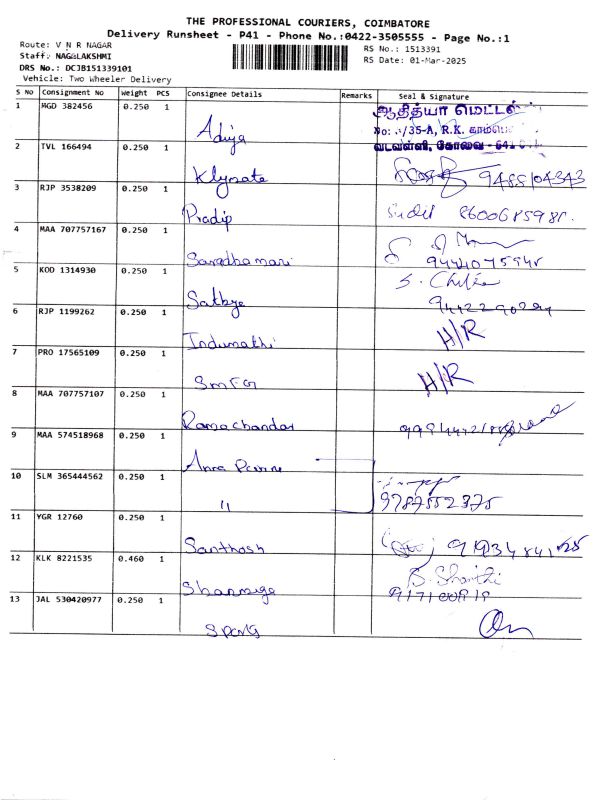 THE PROFESSIONAL COURIERS, COIMBATORE
Delivery Runsheet - P41 - Phone No.:0422-3505555 - Page No.:1
Route: V N R NAGAR
RS No.: 1513391
Staff: NAGALAKSHMI
RS Date: 01-Mar-2025
DRS No.: DCJB151339101
Vehicle: Two Wheeler Delivery
S No Consignment No Weight PCS Consignee Details Remarks Seal & Signature
1 MGD 382456 0.250 1
ஆதித்யா மெட்டல்
No: /35-A, R.K.
Adiya
வடவள்ளி, கோவை - 641
2 TVL 166494 0.250 1
Klynate 9488104343
3 RJP 3538209 0.250 1
Pradip 8600685981
4 MAA 707757167 0.250 1
Saradhamari 9444075948
5 KOD 1314930 0.250 1
Sathye
6 RJP 1199262 0.250 1
Indumathi H/R
7 PRO 17565109 0.250 1
SMFG H/R
8 MAA 707757107 0.250 1
Ramachandar
9 MAA 574518968 0.250 1
10 SLM 365444562 0.250 1
" 9787552375
11 YGR 12760 0.250 1
Santhosh
12 KLK 8221535 0.460 1
B. Shanthi
13 JAL 530420977 0.250 1